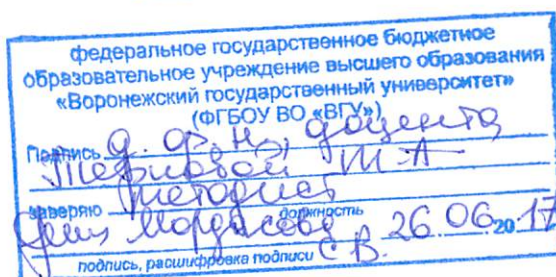 федеральное государственное бюджетное
образовательное учреждение высшего образования
«Воронежский государственный университет»
(ФГБОУ ВО «ВГУ»)
Подпись д. ф. н., доцента
Терновой Т.А
методист
заверяю должность
Мордасова 26.06 2017
подпись, расшифровка подписи С.В.